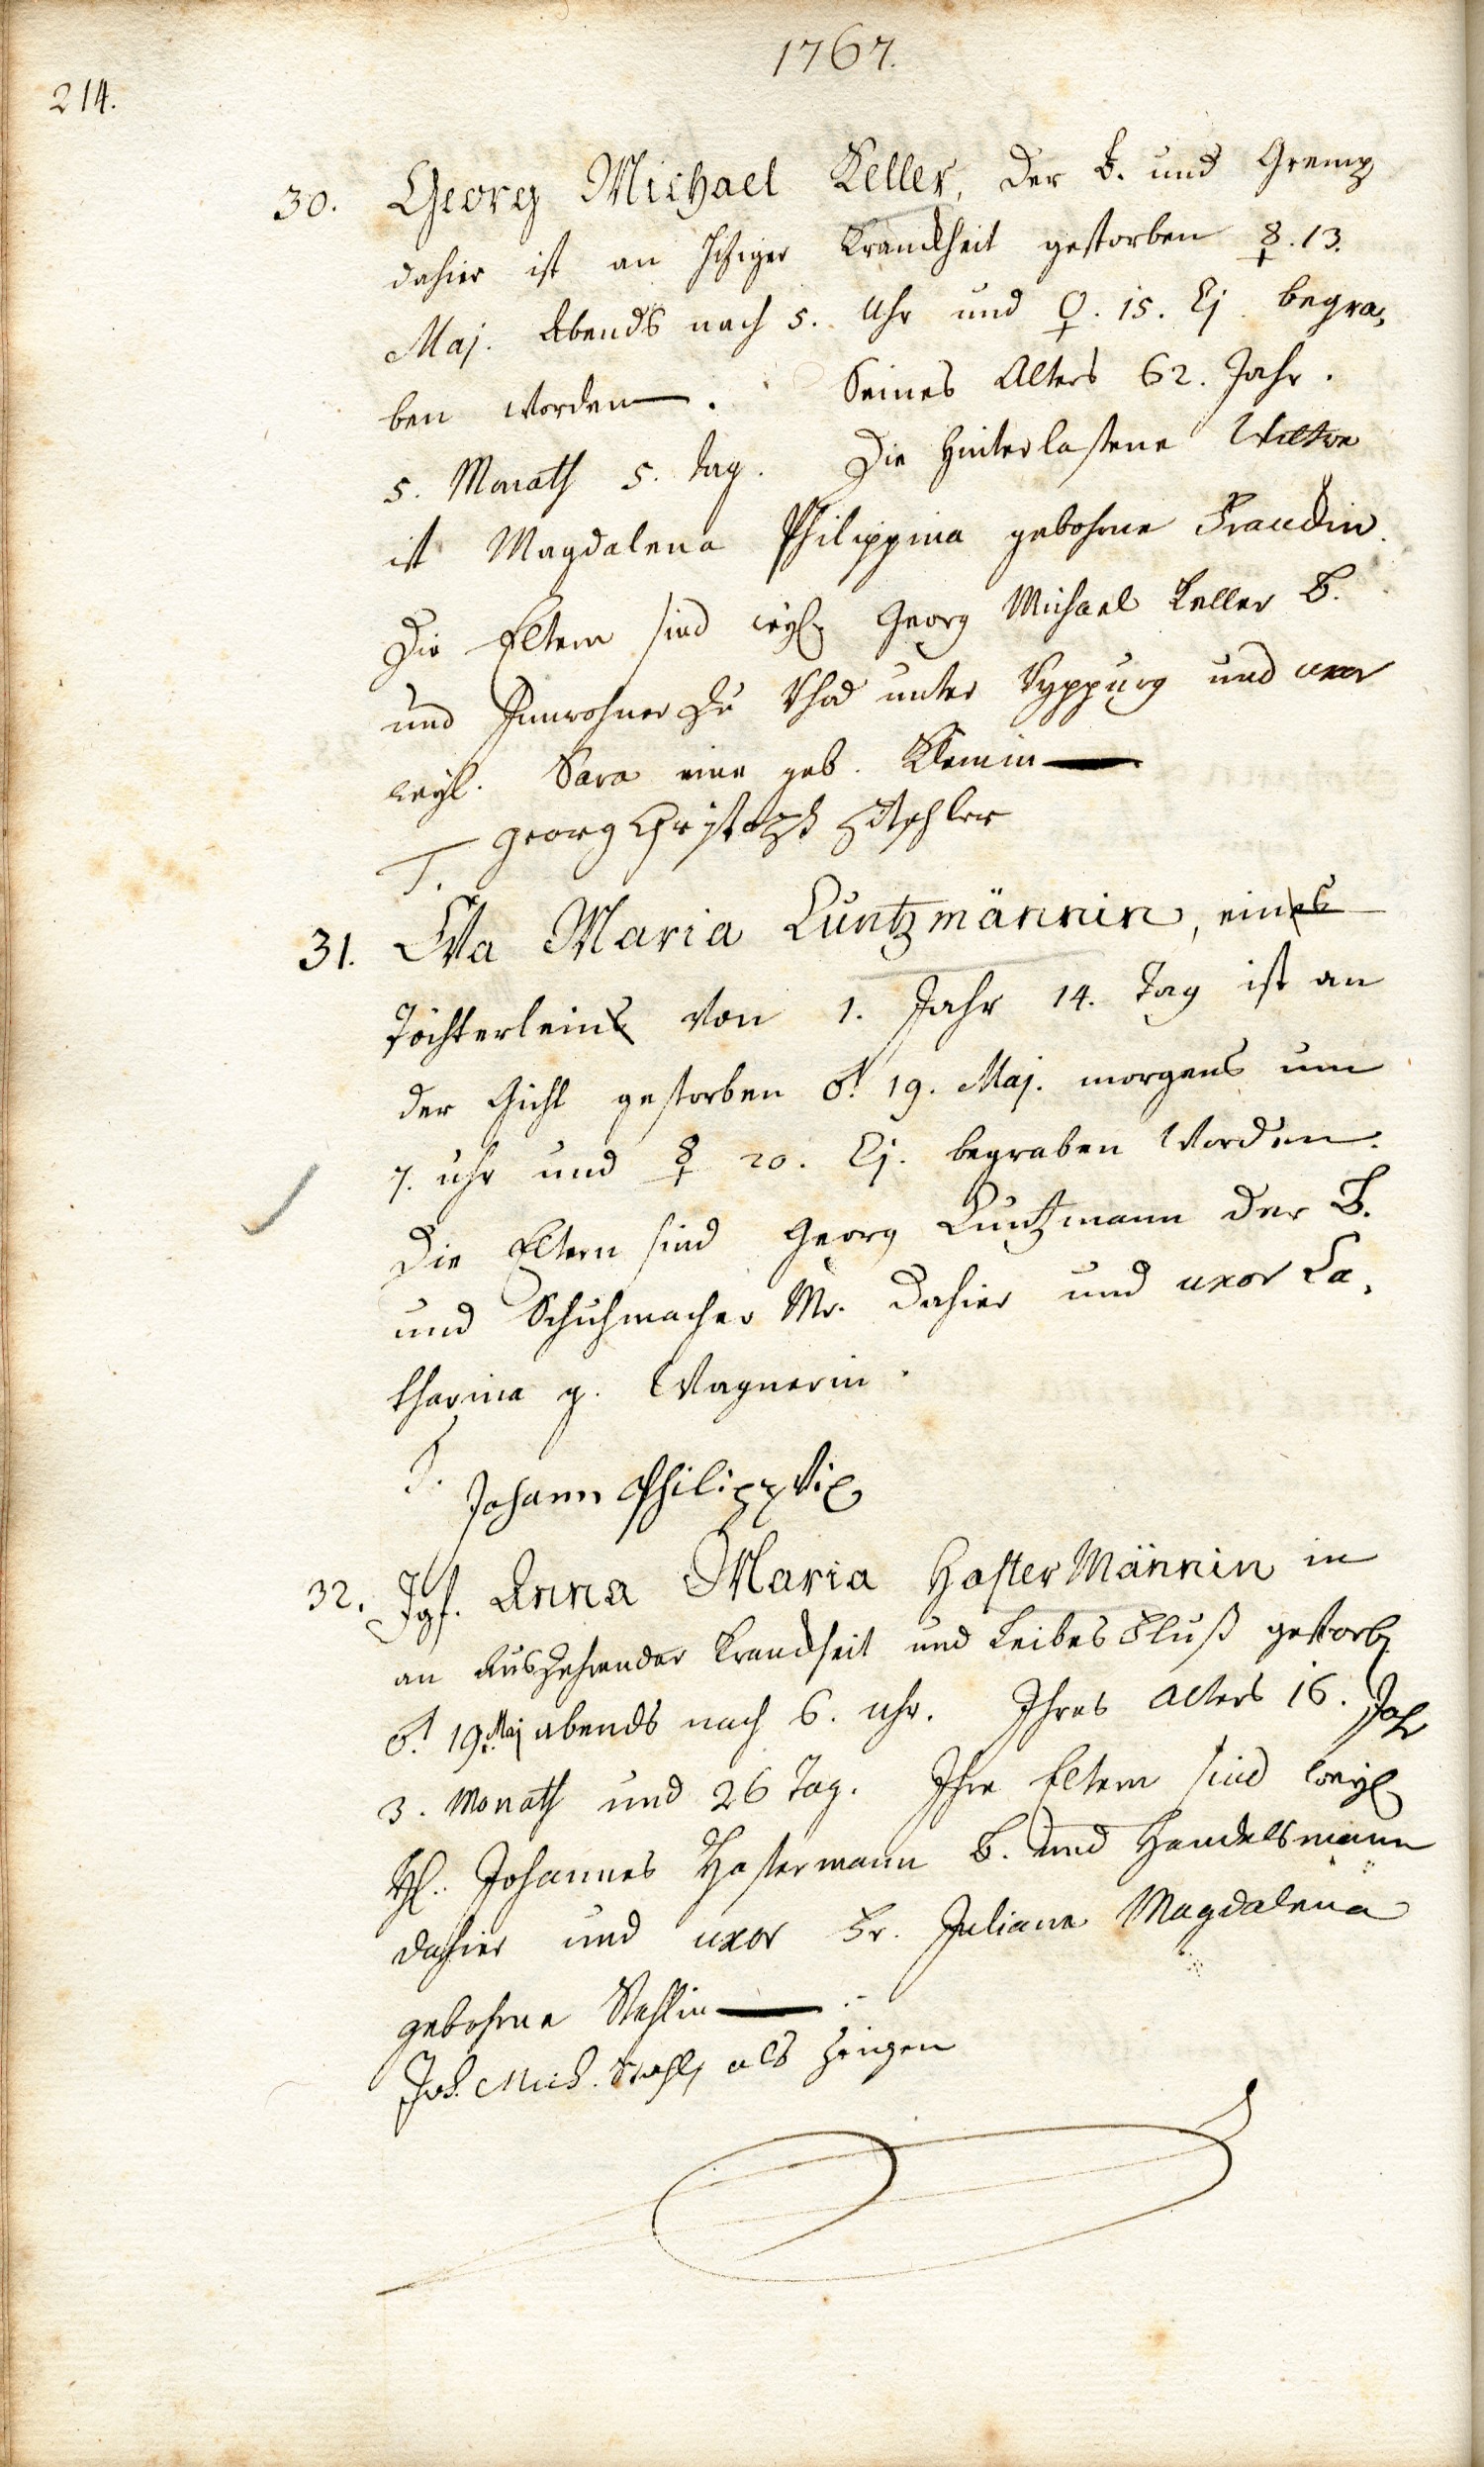 1767.
214.
30. Georg Michael Keller, der B. und Gremp
dahier ist an hitziger Kranckheit gestorben ☿. 13.
Maj. Abends nach 5. Uhr und ♀. 15. Ej. begra,
ben worden. Seines Alters 62. Jahr.
5. Monath 5. tag. Die hinterlassene Wittwe
ist Magdalena Philippina gebohrne
Die Eltern sind weyl. Georg Michael Keller B.
und Innwohner zu unter und uxor
weyl. Sara eine geb.
T. Georg Christoph
31. Eva Maria Cuntzmännin, eines
Töchterleins von 1. Jahr 14. Tag ist an
der Gicht gestorben ♂. 19. Maj. morgens um
7. uhr und ☿ 20. Ej. begraben worden.
Die Eltern sind Georg Cuntzmann der B.
und Schuhmacher Mr. dahier und uxor Ca,
tharina g. Wagnerin.
T. Johann Philipp Vix
32. Jgf. Anna Maria HasterMännin in
an Auszehrender Kranckheit und Leibes Fluß gestorb.
♂. 19. Maj abends nach 6. uhr. Ihres Alters 16. Jahr
3. Monath und 26 Tag. Ihre Eltern sind weyl.
H. Johannes Hastermann B. und Handelsmann
dahier und uxor Fr. Juliana Magdalena
gebohrne Stehlin
Joh. Mich. Stehly als Zeugen